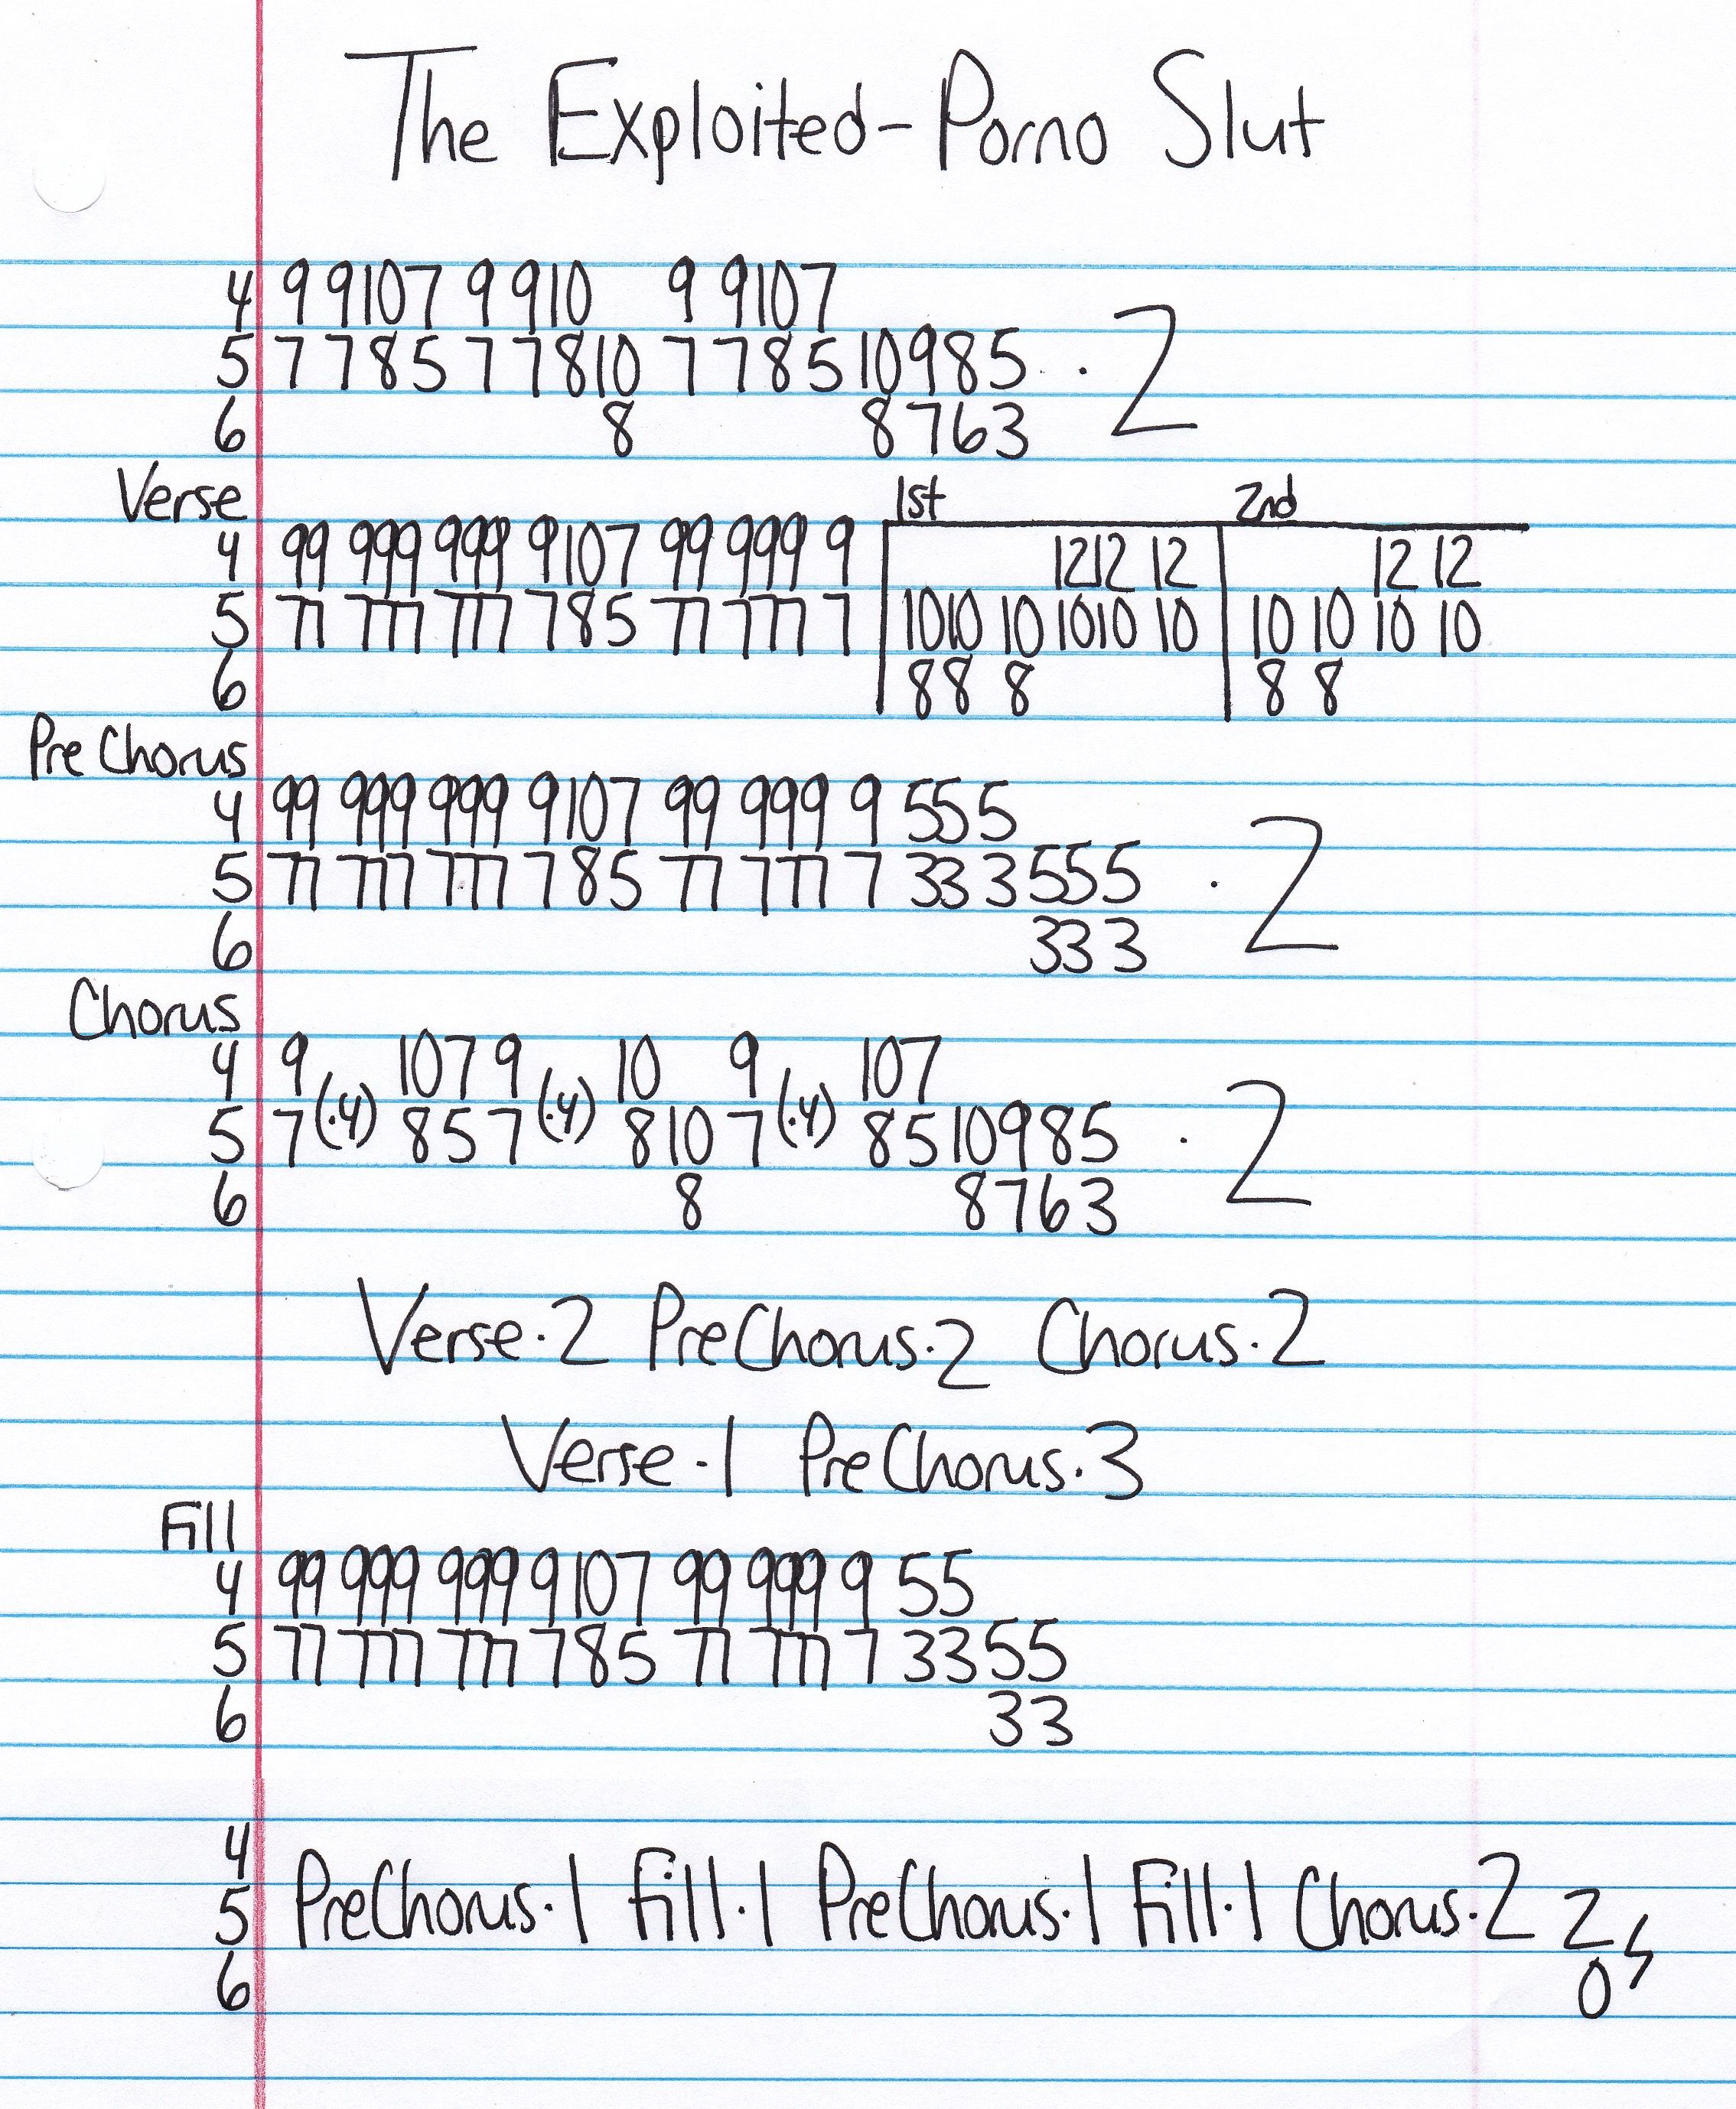 The Exploited - Porno Slut
4 9 9 10 7 9 9 10 9 9 10 7
5 7 7 8 5 7 7 8 10 7 7 8 5 10 9 8 5 · 2
6 8 8 7 6 3
Verse 1st 2nd
4 99 999 999 9 10 7 99 999 9 12 12 12 12 12
5 77 777 777 7 8 5 77 777 7 10 10 10 10 10 10 10 10 10 10
6 8 8 8 8 8
Pre Chorus
4 99 999 999 9 10 7 99 999 9 5 5 5
5 77 777 777 7 8 5 77 777 7 3 3 3 5 5 5 · 2
6 3 3 3
Chorus
4 9 10 7 9 10 9 10 7
5 7 (·4) 8 5 7 (·4) 8 10 7 (·4) 8 5 10 9 8 5 · 2
6 8 8 7 6 3
Verse·2 PreChorus·2 Chorus·2
Verse·1 PreChorus·3
Fill
4 99 999 999 9 10 7 99 999 9 5 5
5 77 777 777 7 8 5 77 777 7 3 3 5 5
6 3 3
4
5 PreChorus·1 Fill·1 PreChorus·1 Fill·1 Chorus·2 2
6 0